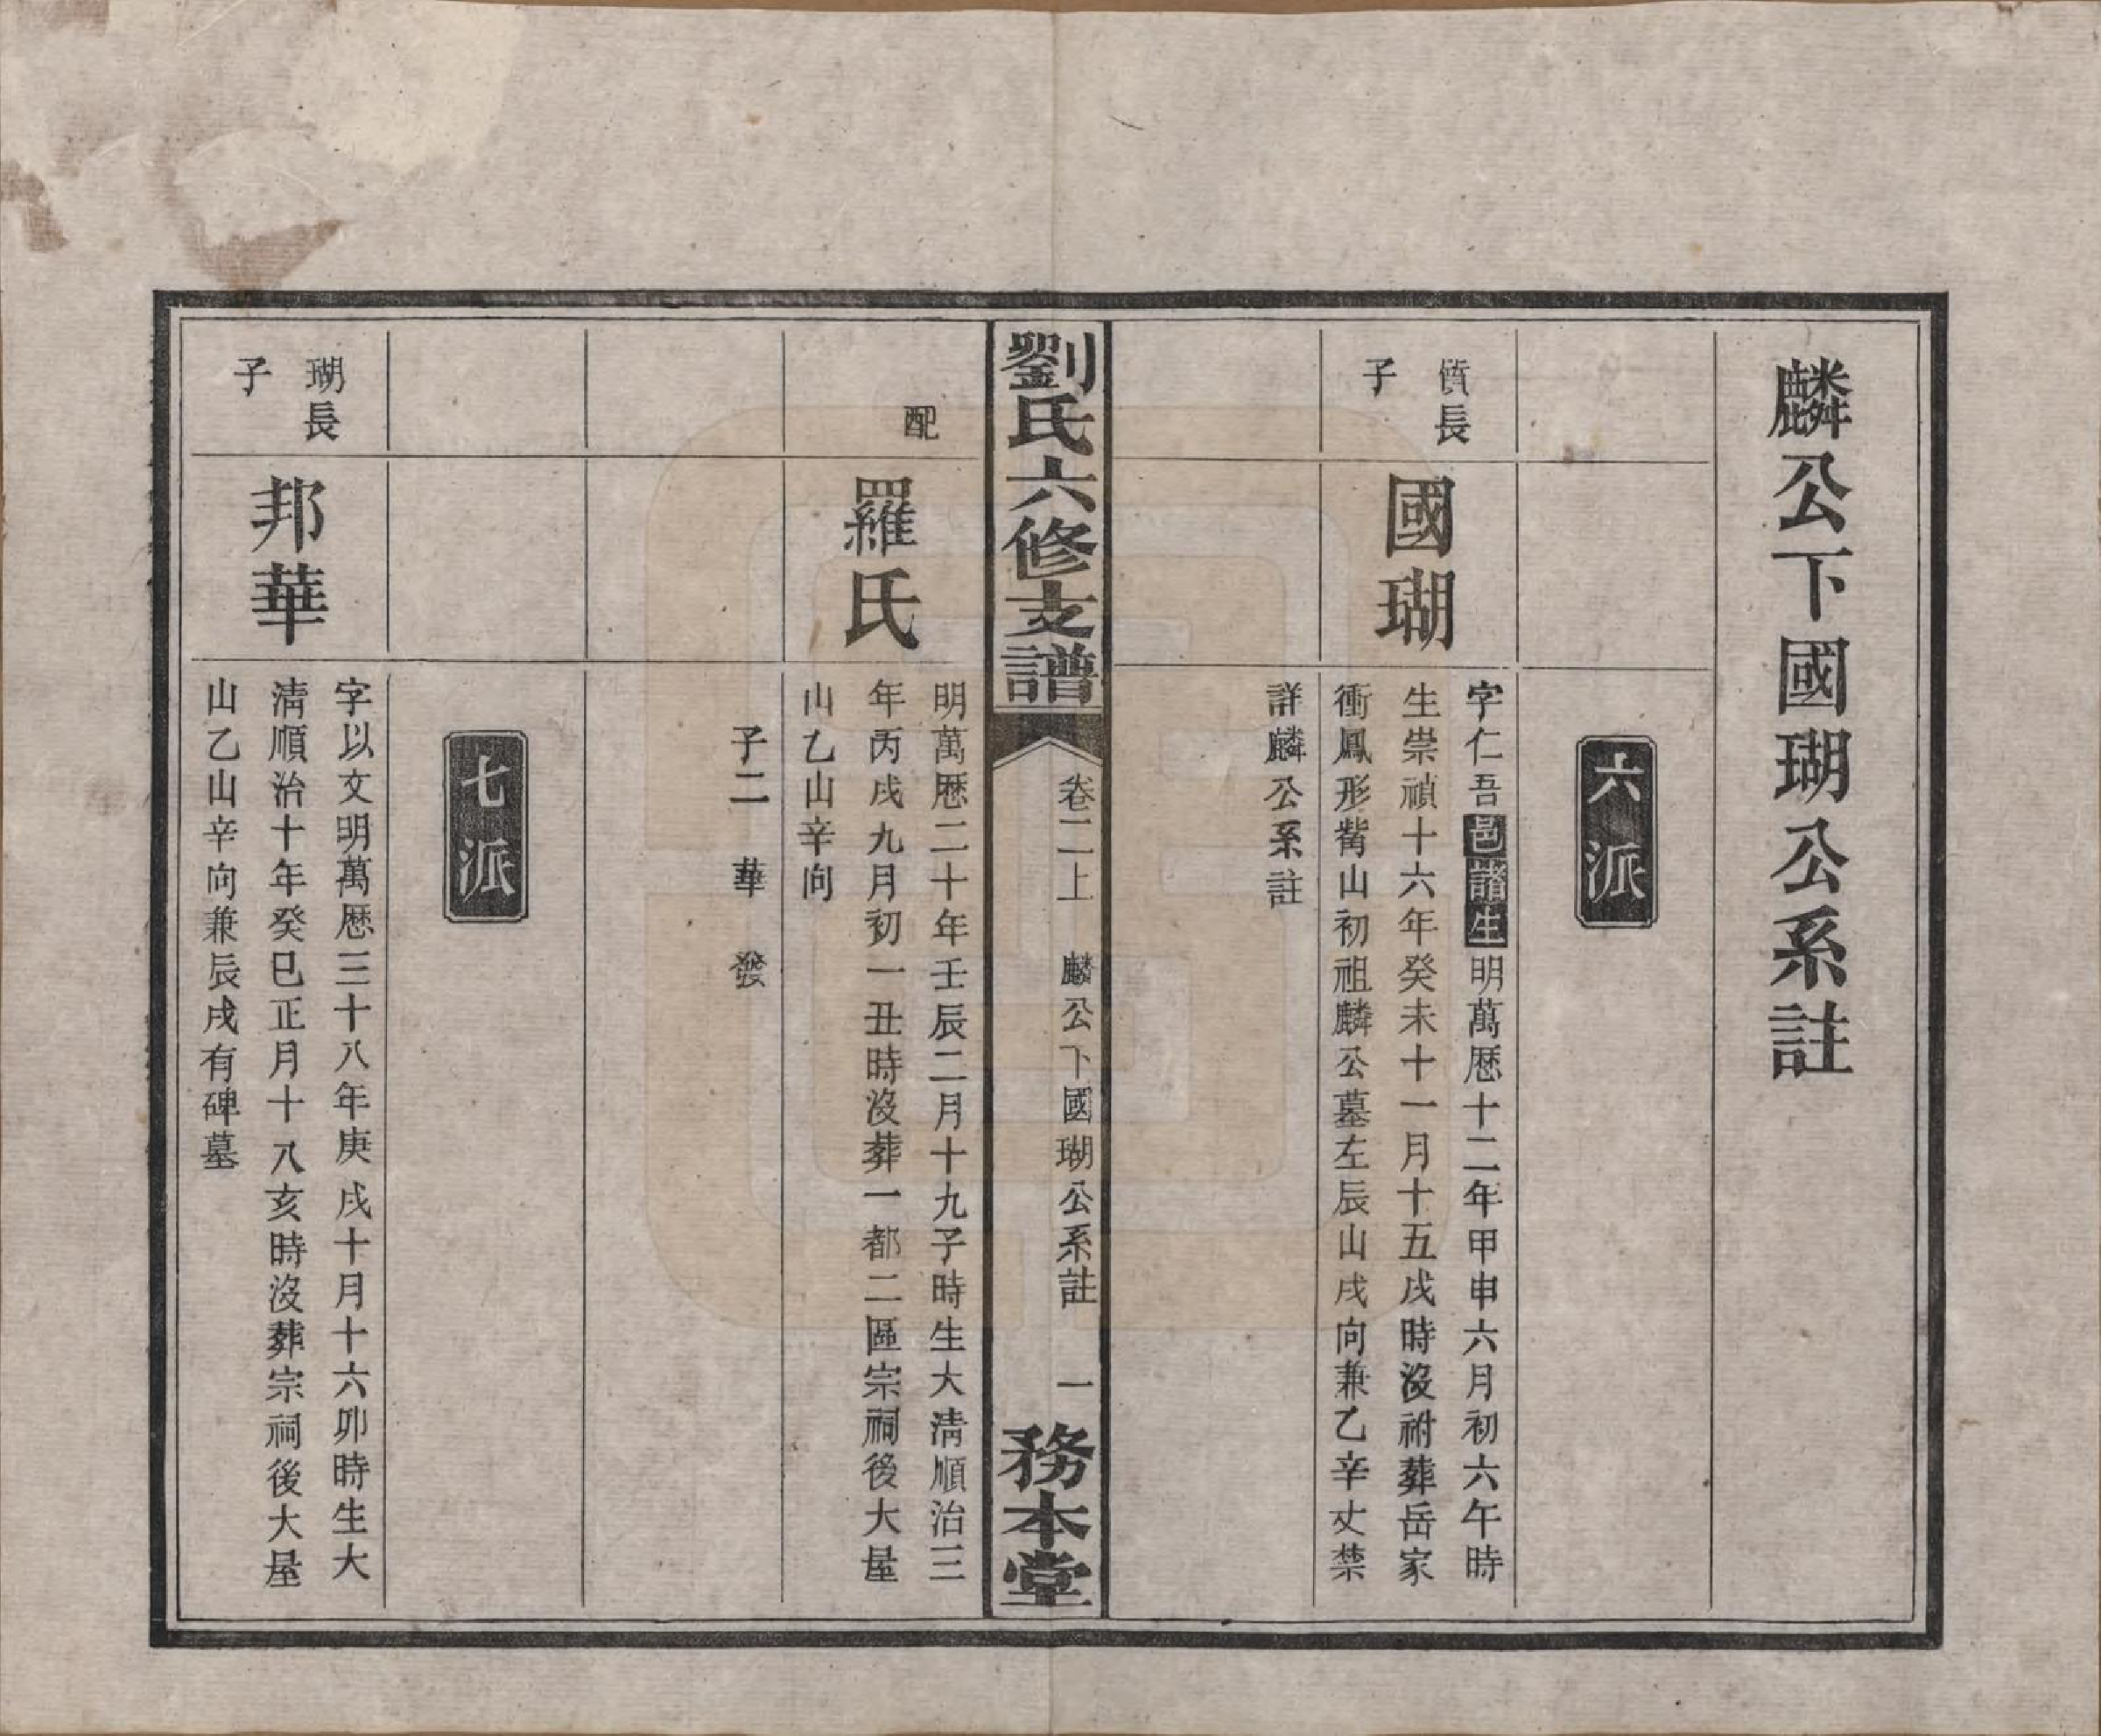 麟公下國瑚公系註
六派
儐長
子
國瑚
字仁吾邑諸生明萬歷十二年甲申六月初六午時
生崇禎十六年癸未十一月十五戌時沒祔葬岳家
衝鳳形觜山初祖麟公墓左辰山戌向兼乙辛丈禁
詳麟公系註
劉氏六修支譜
卷二上　麟公下國瑚公系註　一
務本堂
配
羅氏
明萬歷二十年壬辰二月十九子時生大清順治三
年丙戌九月初一丑時沒葬一都二區宗祠後大屋
山乙山辛向
子二　華　發
七派
瑚長
子
邦華
字以文明萬歷三十八年庚戌十月十六卯時生大
清順治十年癸巳正月十八亥時沒葬宗祠後大屋
山乙山辛向兼辰戌有碑墓